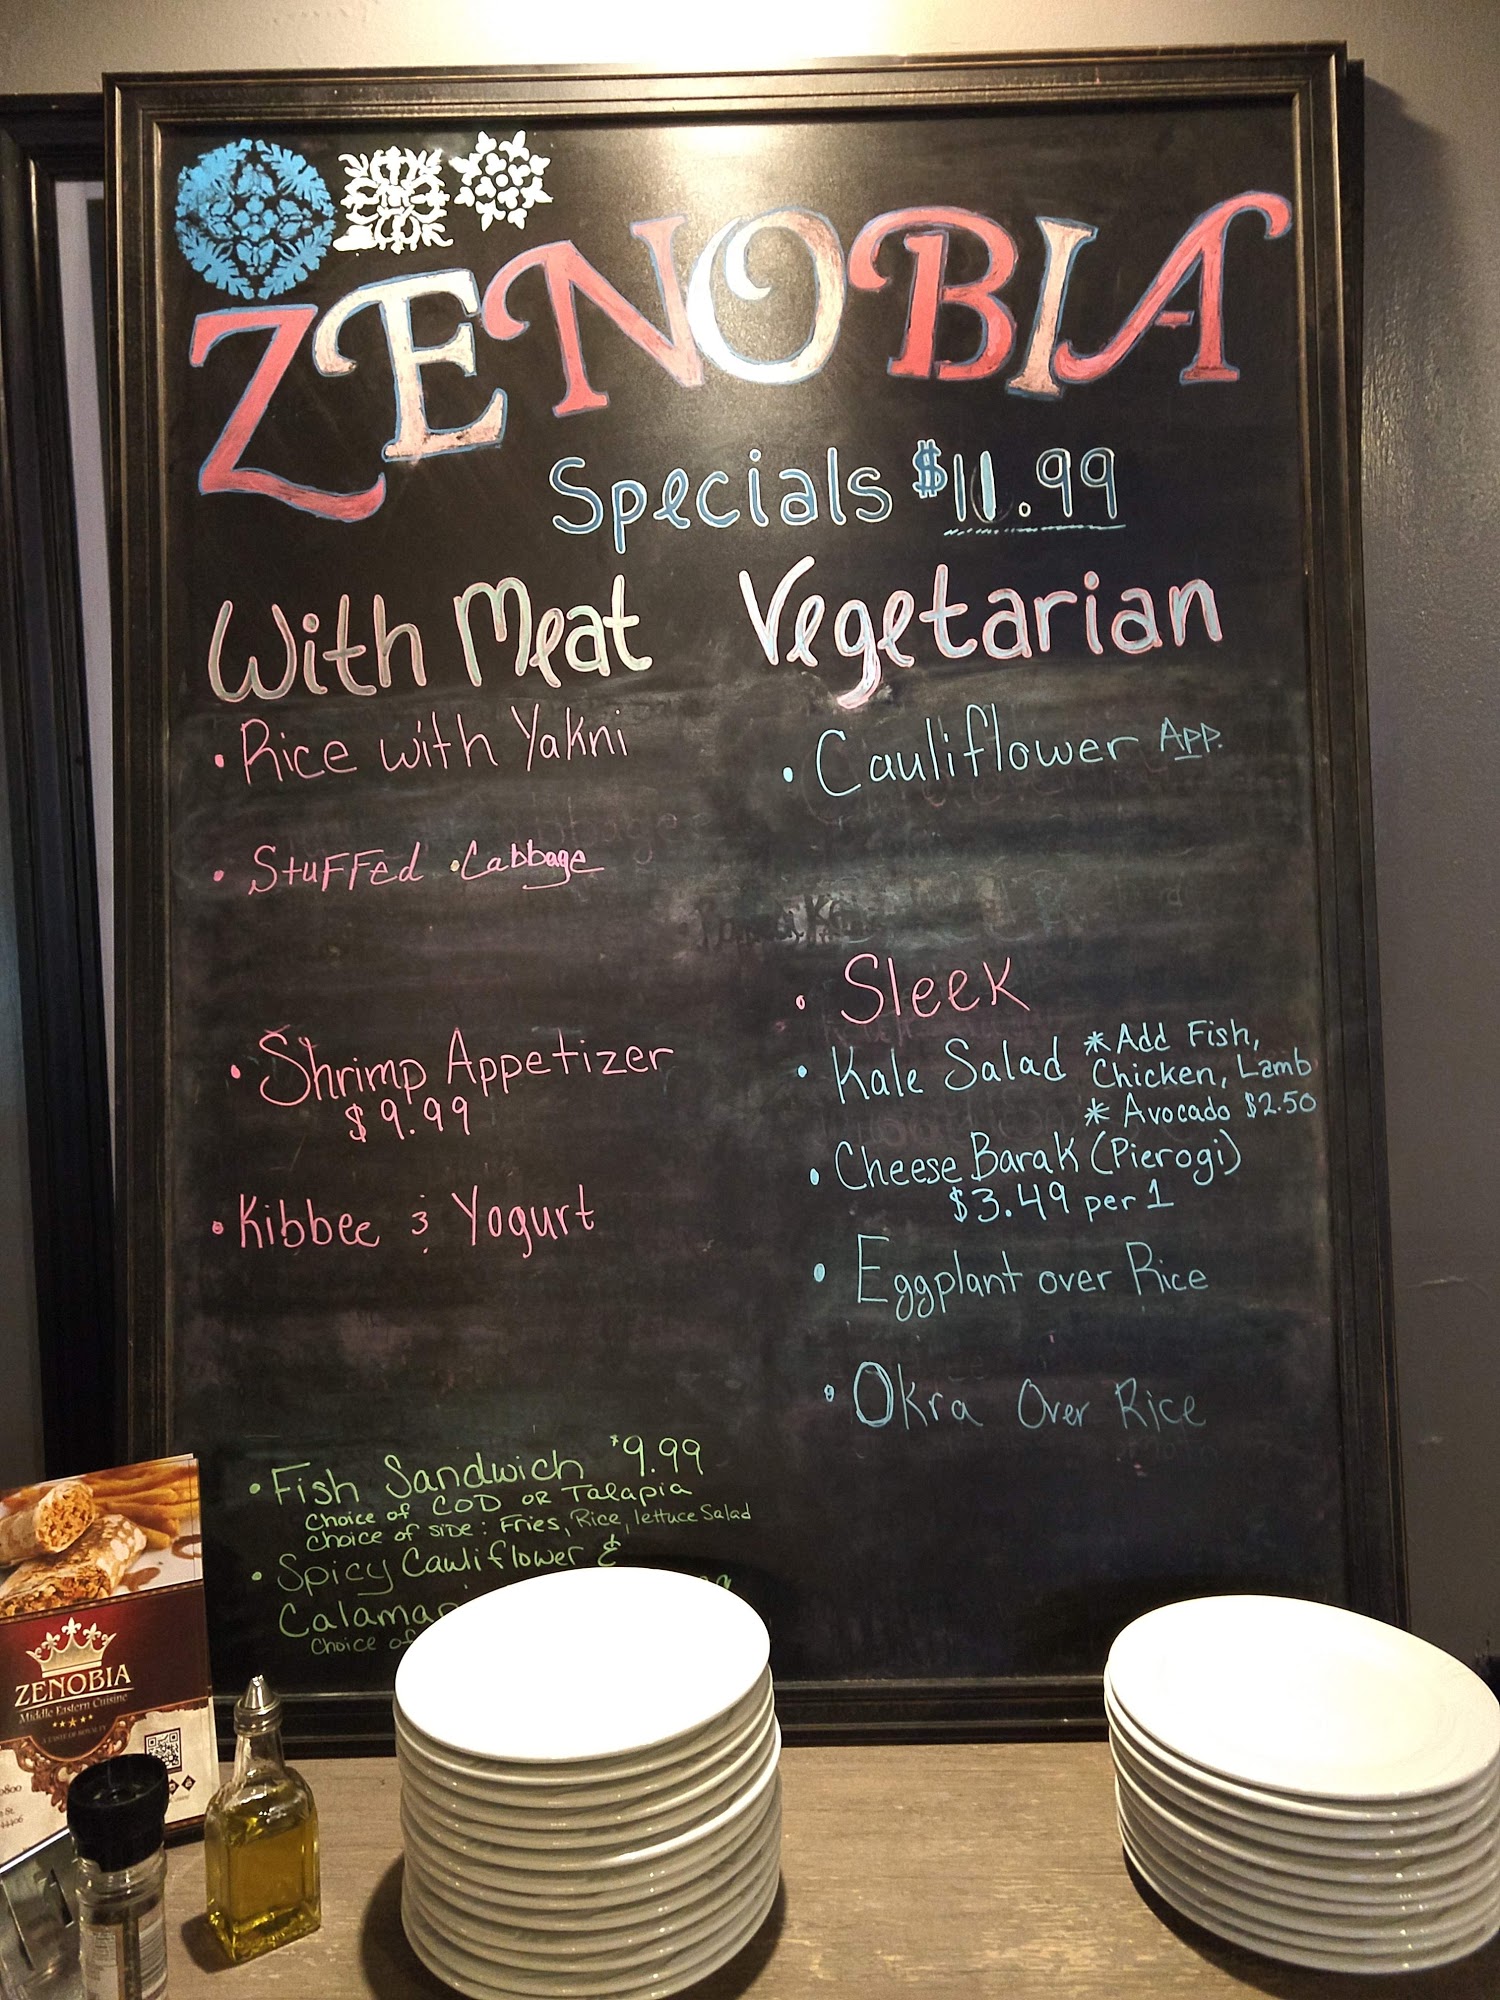 ZENOBIA
Specials $11.99
With Meat
• Rice with Yakni
• Stuffed • Cabbage
• Shrimp Appetizer
$9.99
• Kibbee & Yogurt
• Fish Sandwich $9.99
Choice of COD OR Talapia
Choice of SIDE: Fries, Rice, lettuce Salad
• Spicy Cauliflower &
Calamar
Choice of
Vegetarian
• Cauliflower App.
• Sleek
• Kale Salad * Add Fish,
Chicken, Lamb
* Avocado $2.50
• Cheese Barak (Pierogi)
$3.49 per 1
• Eggplant over Rice
• Okra Over Rice
ZENOBIA
Middle Eastern Cuisine
A TASTE OF ROYALTY